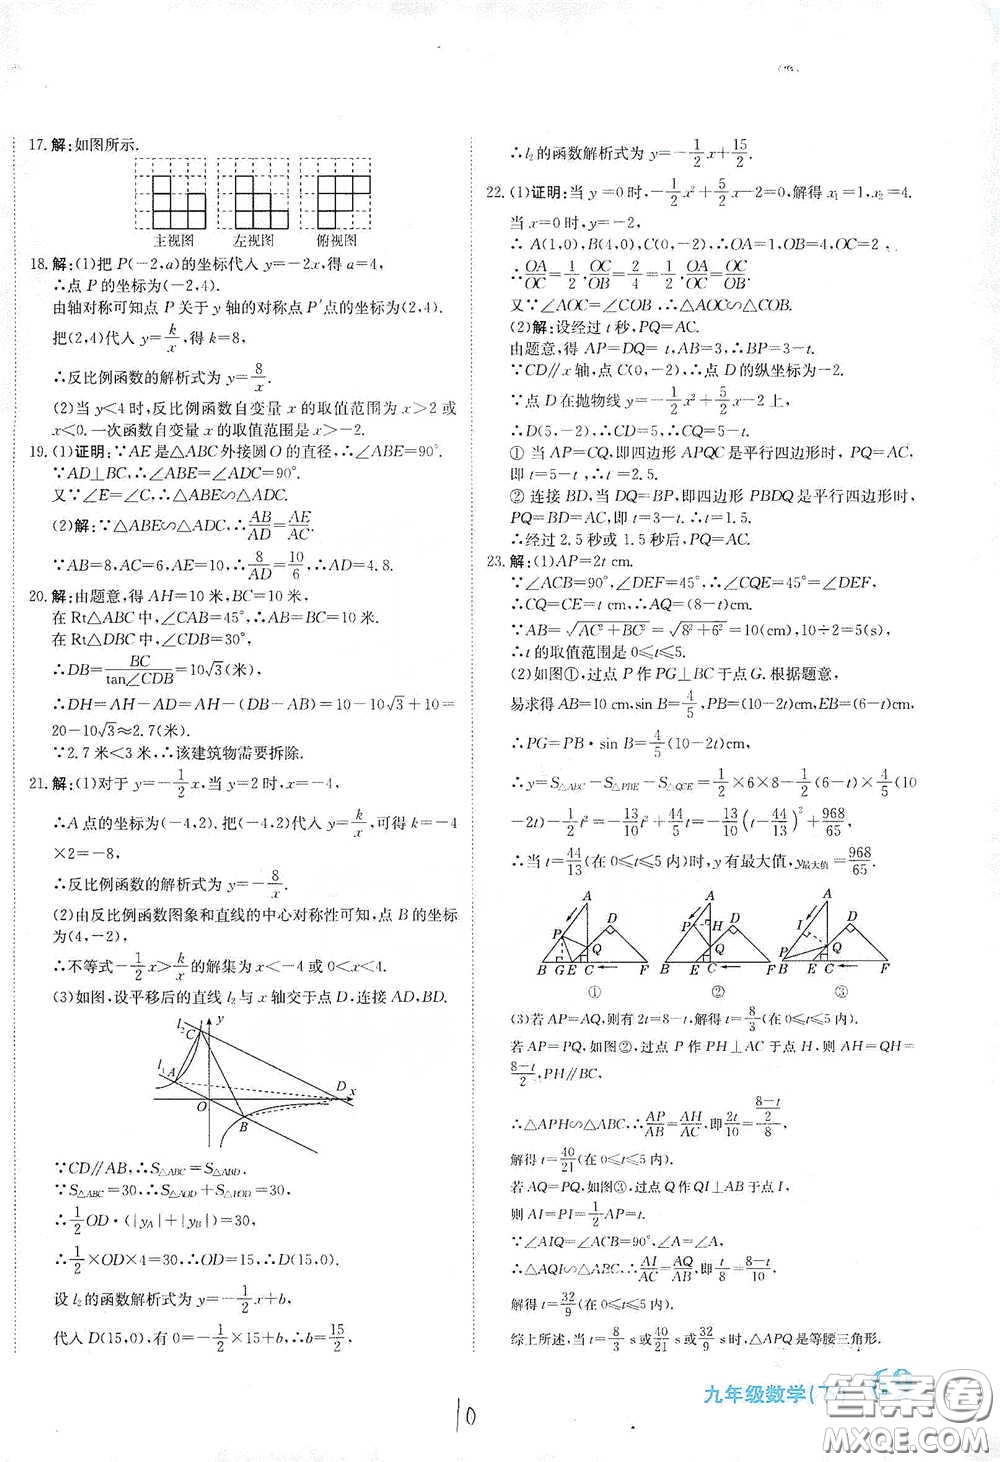 17.解:如图所示.
主视图 左视图 俯视图
18.解:(1)把 P(-2,a)的坐标代入 y=-2x,得 a=4,
∴点 P 的坐标为(-2,4).
由轴对称可知点 P 关于 y 轴的对称点 P′点的坐标为(2,4).
把(2,4)代入 y=k/x,得 k=8,
∴反比例函数的解析式为 y=8/x.
(2)当 y<4时,反比例函数自变量 x 的取值范围为 x>2 或
x<0.一次函数自变量 x 的取值范围是 x>-2.
19.(1)证明:∵AE 是△ABC 外接圆 O 的直径,∴∠ABE=90°.
∵AD⊥BC,∴∠ABE=∠ADC=90°.
又∵∠E=∠C,∴△ABE∽△ADC.
(2)解:∵△ABE∽△ADC,∴AB/AD=AE/AC.
∵AB=8,AC=6,AE=10,∴8/AD=10/6,∴AD=4.8.
20.解:由题意,得 AH=10 米,BC=10 米.
在 Rt△ABC 中,∠CAB=45°,∴AB=BC=10 米.
在 Rt△DBC 中,∠CDB=30°,
∴DB=BC/tan∠CDB=10√3(米),
∴DH=AH-AD=AH-(DB-AB)=10-10√3+10=
20-10√3≈2.7(米).
∵2.7 米<3 米,∴该建筑物需要拆除.
21.解:(1)对于 y=-1/2x,当 y=2 时,x=-4,
∴A 点的坐标为(-4,2).把(-4,2)代入 y=k/x,可得 k=-4
×2=-8,
∴反比例函数的解析式为 y=-8/x.
(2)由反比例函数图象和直线的中心对称性可知,点 B 的坐标
为(4,-2),
∴不等式-1/2x>k/x的解集为 x<-4 或 0<x<4.
(3)如图,设平移后的直线 l₂ 与 x 轴交于点 D,连接 AD,BD.
l₂ C y
l₁ A D x
O
B
∵CD∥AB,∴S△ABC=S△ABD.
∵S△ABC=30,∴S△AOD+S△BOD=30,
∴1/2OD·(|yA|+|yB|)=30,
∴1/2×OD×4=30,∴OD=15,∴D(15,0).
设 l₂ 的函数解析式为 y=-1/2x+b,
代入 D(15,0),有 0=-1/2×15+b,∴b=15/2.
∴l₂ 的函数解析式为 y=-1/2x+15/2.
22.(1)证明:当 y=0 时,-1/2x²+5/2x-2=0,解得 x₁=1,x₂=4.
当 x=0 时,y=-2.
∴ A(1,0),B(4,0),C(0,-2),∴OA=1,OB=4,OC=2,
∴OA/OC=1/2,OC/OB=2/4=1/2,∴OA/OC=OC/OB.
又∵∠AOC=∠COB,∴△AOC∽△COB.
(2)解:设经过 t 秒,PQ=AC.
由题意,得 AP=DQ= t,AB=3,∴BP=3-t.
∵CD∥x 轴,点 C(0,-2),∴点 D 的纵坐标为-2.
∵点 D 在抛物线 y=-1/2x²+5/2x-2上,
∴D(5,-2),∴CD=5,∴CQ=5-t.
① 当 AP=CQ,即四边形 APQC 是平行四边形时,PQ=AC,
即 t=5-t,∴t=2.5.
② 连接 BD,当 DQ=BP,即四边形 PBDQ 是平行四边形时,
PQ=BD=AC,即 t=3-t.∴t=1.5.
∴经过 2.5 秒或 1.5 秒时,PQ=AC.
23.解:(1)AP=2t cm.
∵∠ACB=90°,∠DEF=45°,∴∠CQE=45°=∠DEF,
∴CQ=CE=t cm,∴AQ=(8-t)cm.
∵AB=√AC²+BC²=√8²+6²=10(cm),10÷2=5(s),
∴t 的取值范围是 0≤t≤5.
(2)如图①,过点 P 作 PG⊥BC 于点 G.根据题意,
易求得 AB=10 cm,sin B=4/5,PB=(10-2t)cm,EB=(6-t)cm,
∴PG=PB·sin B=4/5(10-2t)cm,
∴y=S△ABC-S△PBE-S△QCE=1/2×6×8-1/2(6-t)×4/5(10
-2t)-1/2t²=-13/10t²+44/5t=-13/10(t-44/13)²+968/65,
∴当 t=44/13(在 0≤t≤5 内)时,y 有最大值,y最大值=968/65.
A D P Q B G E C F
①
A D P H Q B E C F
②
A D I Q P B E C F
③
(3)若 AP=AQ,则有 2t=8-t,解得 t=8/3(在 0≤t≤5 内).
若 AP=PQ,如图②,过点 P 作 PH⊥AC 于点 H,则 AH=QH=
8-t/2,PH∥BC,
∴△APH∽△ABC,∴AP/AB=AH/AC,即2t/10=8-t/2/8,
解得 t=40/21(在 0≤t≤5 内).
若 AQ=PQ,如图③,过点 Q 作 QI⊥AB 于点 I,
则 AI=PI=1/2AP=t.
∵∠AIQ=∠ACB=90°,∠A=∠A,
∴△AQI∽△ABC,∴AI/AC=AQ/AB,即t/8=8-t/10,
解得 t=32/9(在 0≤t≤5 内).
综上所述,当 t=8/3 s或40/21 s或32/9 s时,△APQ 是等腰三角形.
10
九年级数学(下)
答案圈
MXQE.COM